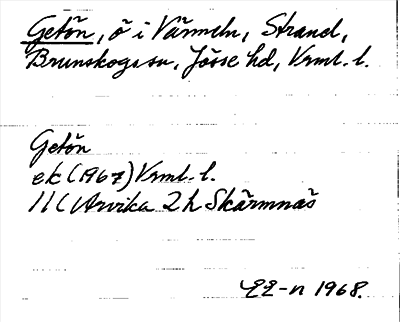 Getön, ö i Värmeln, Strand,
Brunskogs sn, Jösse hd, Vrml. l.
Getön
ek (1967) Vrml. l.
11C Arvika 2h Skärmnäs
1968.